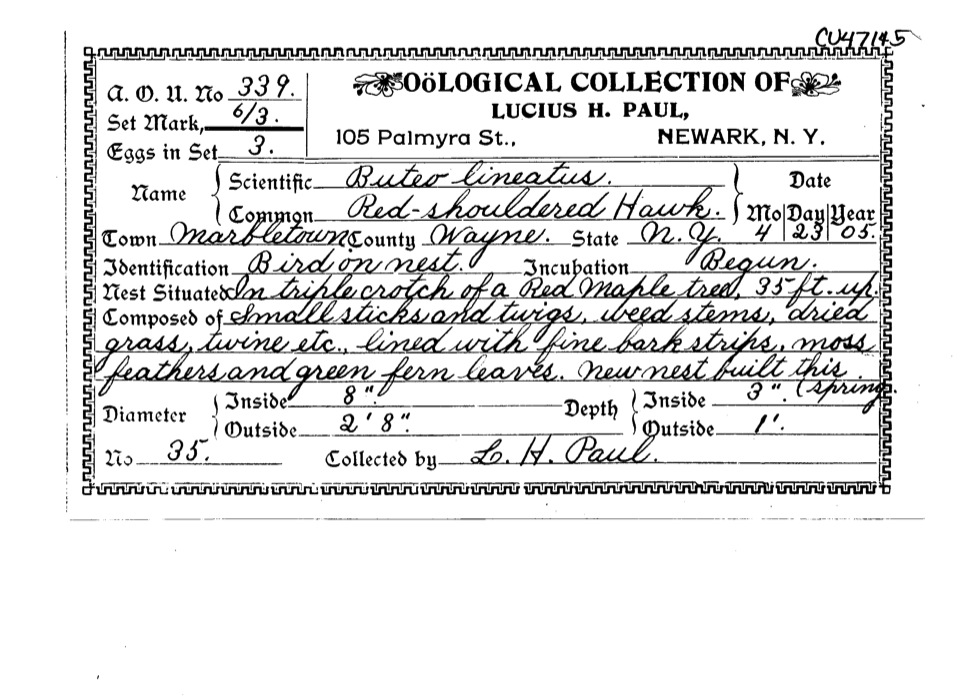 CU47145
A. O. U. No 339.
OÖLOGICAL COLLECTION OF
Set Mark, 6/3.
LUCIUS H. PAUL,
Eggs in Set 3.
105 Palmyra St., NEWARK, N. Y.
Name { Scientific Buteo lineatus. } Date
Common Red-shouldered Hawk. Mo Day Year
Town Marbletown County Wayne. State N.Y. 4 23 05.
Identification Bird on nest. Incubation Begun.
Nest Situated In triple crotch of a Red Maple tree, 35 ft. up.
Composed of Small sticks and twigs, weed stems, dried
grass, twine etc., lined with fine bark strips, moss
feathers and green fern leaves. New nest built this
(spring.
Diameter { Inside 8". Depth { Inside 3".
Outside 2' 8". Outside 1'.
No 35. Collected by L. H. Paul.